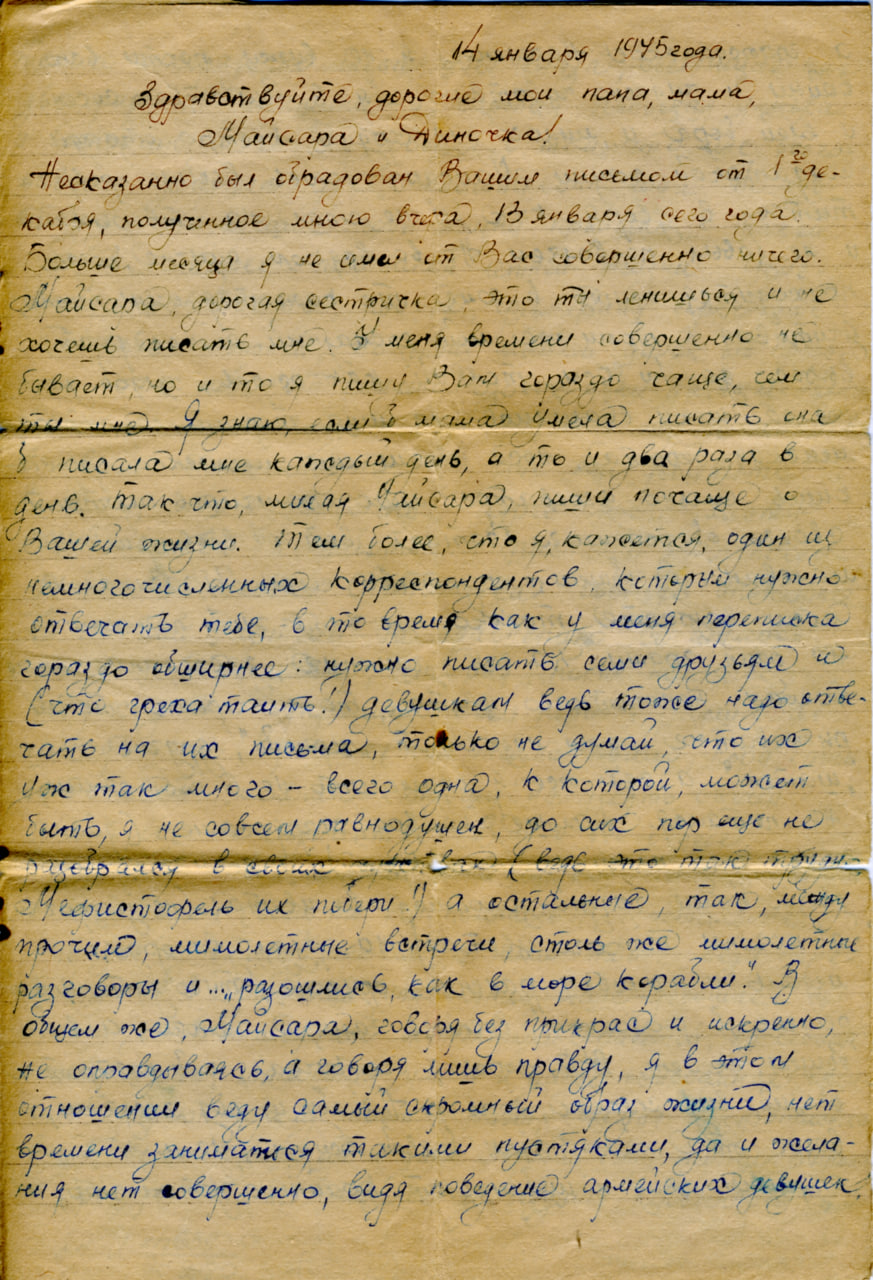 14 января 1945 года.
Здравствуйте, дорогие мои папа, мама,
Майсара и Диночка!
Несказанно был обрадован Вашим письмом от 1го де-
кабря, полученное мною вчера, 13 января сего года.
Больше месяца я не имел от Вас совершенно ничего.
Майсара, дорогая сестричка, это ты ленишься и не
хочешь писать мне. У меня времени совершенно не
бывает, но и то я пишу Вам гораздо чаще, чем
ты мне. Я знаю, если б мама умела писать она
б писала мне каждый день, а то и два раза в
день. Так что, милая Майсара, пиши почаще о
Вашей жизни. Тем более, что я, кажется, один из
немногочисленных корреспондентов, которым нужно
отвечать тебе, в то время как у меня переписка
гораздо обширнее: нужно писать семи друзьям и
(что греха таить!) девушкам ведь тоже надо отве-
чать на их письма, только не думай, что их
уж так много – всего одна, к которой, может
быть, я не совсем равнодушен, до сих пор еще не
разобрался в своих чувствах (ведь это так трудно
Мефистофель их побери!) а остальные, так, между
прочим, мимолетные встречи, столь же мимолетные
разговоры и... „разошлись, как в море корабли." В
общем же, Майсара, говоря без прикрас и искренно,
не оправдываясь, а говоря лишь правду, я в этом
отношении веду самый скромный образ жизни, нет
времени заниматься такими пустяками, да и жела-
ния нет совершенно, видя поведение армейских девушек.